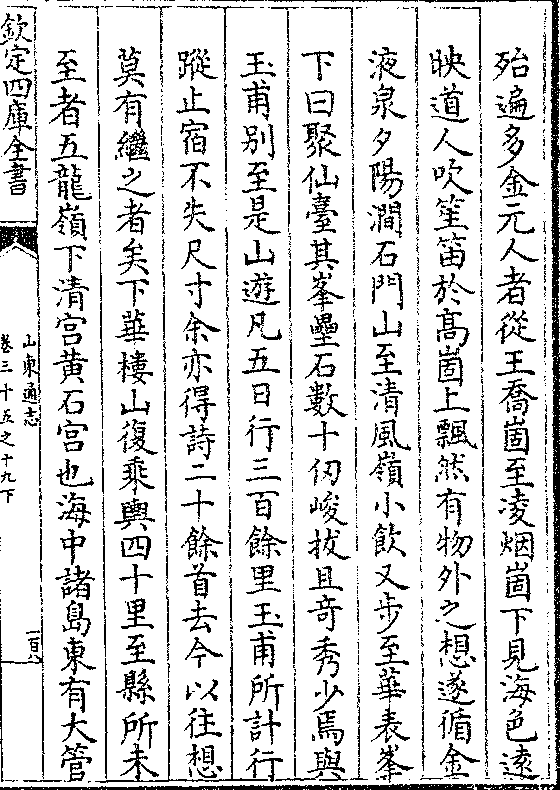 殆遍多金元人者從王喬崮至凌烟崮下見海色遠
映道人吹笙笛於高崮上飄然有物外之想遂循金
液泉夕陽澗石門山至清風嶺小飲又步至華表峯
下曰聚仙臺其峯壘石數十仞峻拔且竒秀少焉與
玉甫别至是山遊凡五日行三百餘里玉甫所計行
蹤止宿不失尺寸余亦得詩二十餘首去今以往想
莫有繼之者矣下華樓山復乘輿四十里至縣所未
至者五龍嶺下清宫黄石宫也海中諸島東有大管
欽定四庫全書
山東通志
卷三十五之十九下
一百八